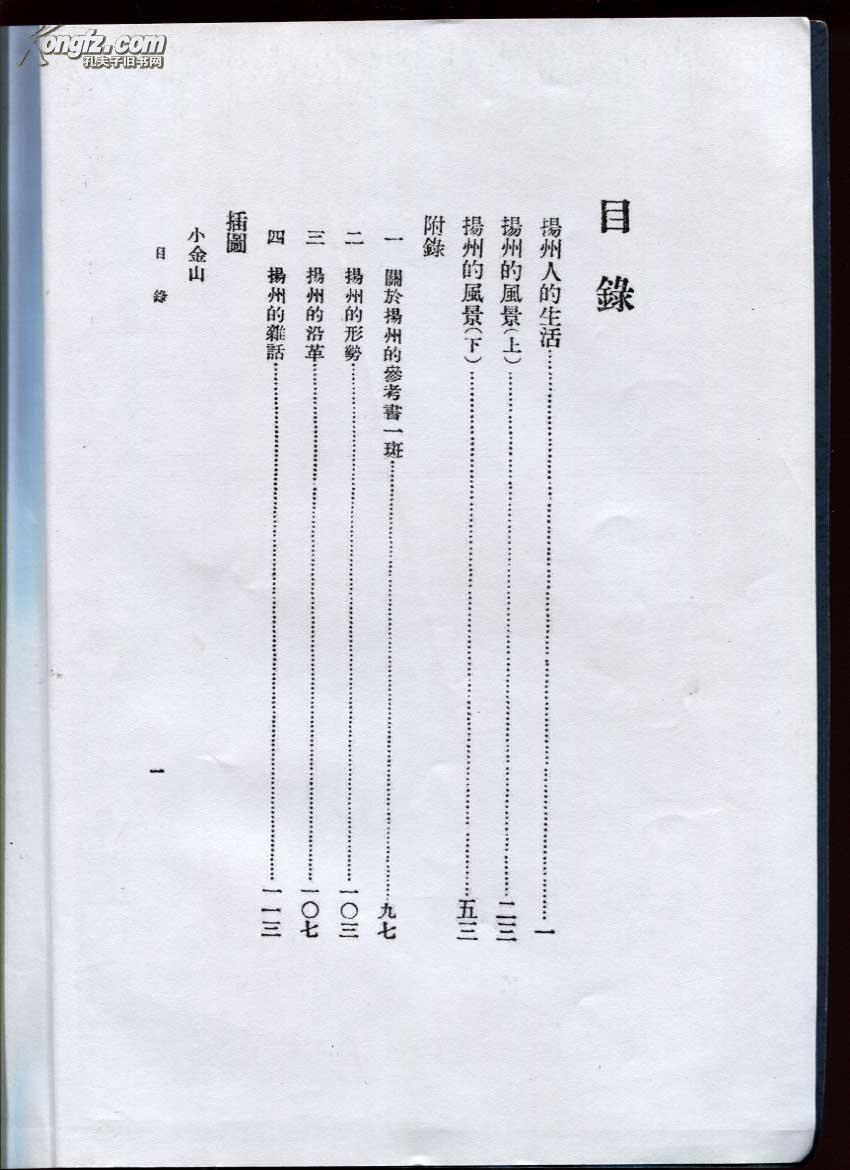 Kongfz.com
孔夫子旧书网
目錄
揚州人的生活……一
揚州的風景(上)……二三
揚州的風景(下)……五三
附錄
一 關於揚州的參考書一斑……九七
二 揚州的形勢……一〇三
三 揚州的沿革……一〇七
四 揚州的雜話……一一三
插圖
小金山
目錄
一